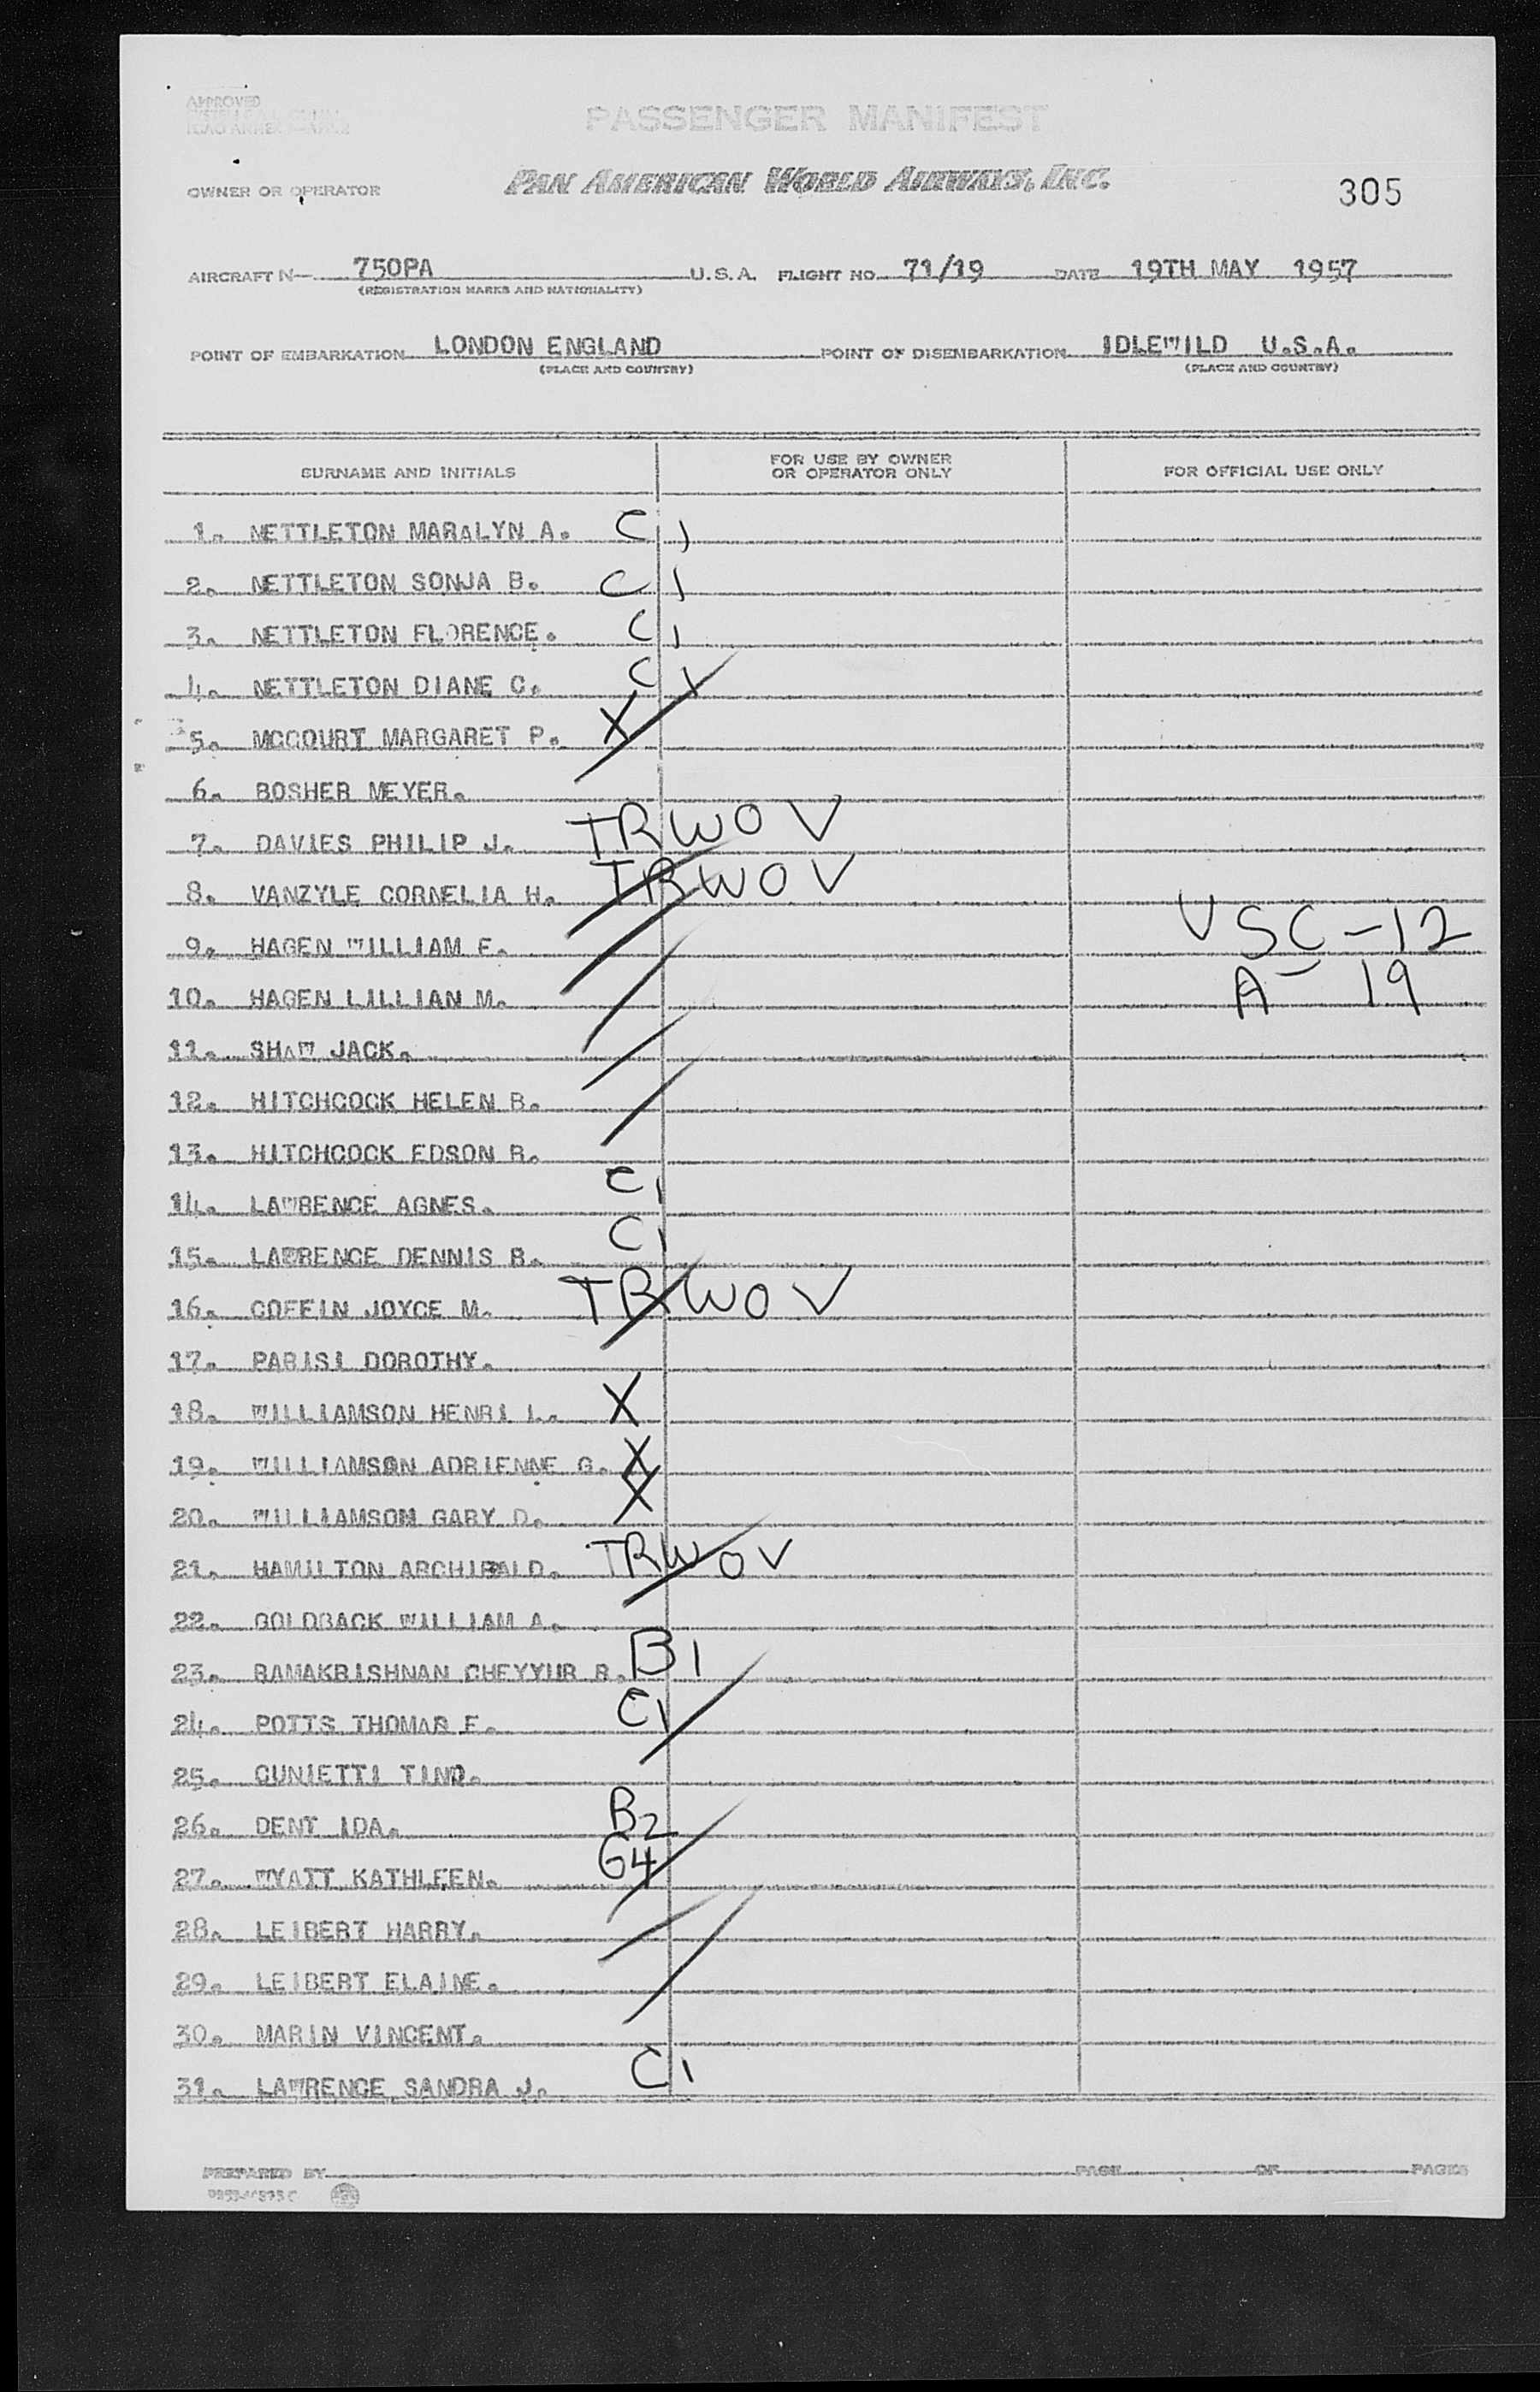 APPROVED
PASSENGER MANIFEST
OWNER OR OPERATOR PAN AMERICAN WORLD AIRWAYS, INC. 305
AIRCRAFT N— 750PA U.S.A. FLIGHT NO. 71/19 DATE 19TH MAY 1957
(REGISTRATION MARKS AND NATIONALITY)
POINT OF EMBARKATION LONDON ENGLAND POINT OF DISEMBARKATION IDLEWILD U.S.A.
(PLACE AND COUNTRY) (PLACE AND COUNTRY)
SURNAME AND INITIALS FOR USE BY OWNER OR OPERATOR ONLY FOR OFFICIAL USE ONLY
1. NETTLETON MARALYN A. C 1
2. NETTLETON SONJA B. C 1
3. NETTLETON FLORENCE. C 1
4. NETTLETON DIANE C. C 1
5. MCCOURT MARGARET P. X
6. BOSHER MEYER.
7. DAVIES PHILIP J. TRWOV
8. VANZYLE CORNELIA H. TRWOV
9. HAGEN WILLIAM F. USC-12
10. HAGEN LILLIAN M. A- 19
11. SHAW JACK.
12. HITCHCOCK HELEN B.
13. HITCHCOCK EDSON R.
14. LAWRENCE AGNES. C1
15. LAWRENCE DENNIS B. C1
16. COFFIN JOYCE M. TRWOV
17. PARISI DOROTHY.
18. WILLIAMSON HENRI L. X
19. WILLIAMSON ADRIENNE G. X
20. WILLIAMSON GARY D. X
21. HAMILTON ARCHIBALD. TRWOV
22. GOLDBACK WILLIAM A.
23. RAMAKRISHNAN CHEYYUR R. B1
24. POTTS THOMAS F. C1
25. CUNIETTI TINO.
26. DENT IDA. B2
27. WYATT KATHLEEN. G4
28. LEIBERT HARRY.
29. LEIBERT ELAINE.
30. MARIN VINCENT.
31. LAWRENCE SANDRA J. C1
PREPARED BY PAGE OF PAGES